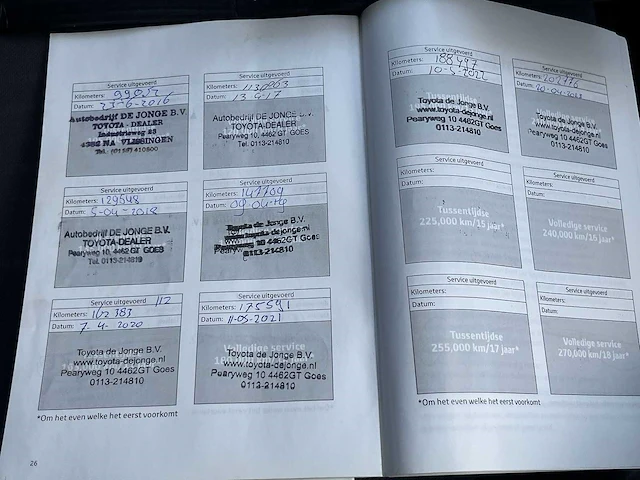 Service uitgevoerd
Kilometers:
Datum: 23-6-2016
Autobedrijf DE JONGE B.V.
TOYOTA - DEALER
Industrieweg 23
4382 NA VLISSINGEN
Tel. (0118) 410500
Service uitgevoerd
Kilometers:
Datum: 13-4-17
Autobedrijf DE JONGE B.V.
TOYOTA-DEALER
Pearyweg 10, 4462 GT GOES
Tel. 0113-214810
Service uitgevoerd
Kilometers: 129548
Datum: 5-04-2018
Autobedrijf DE JONGE B.V.
TOYOTA-DEALER
Pearyweg 10, 4462 GT GOES
Tel. 0113-214810
Service uitgevoerd
Kilometers: 147709
Datum:
Toyota de Jonge B.V.
www.toyota-dejonge.nl
Pearyweg 10 4462GT Goes
0113-214810
Service uitgevoerd
Kilometers: 162 383
Datum: 7-4-2020
Toyota de Jonge B.V.
www.toyota-dejonge.nl
Pearyweg 10 4462GT Goes
0113-214810
Service uitgevoerd
Kilometers: 175591
Datum: 11-05-2021
Volledige service
Toyota de Jonge B.V.
www.toyota-dejonge.nl
Pearyweg 10 4462GT Goes
0113-214810
*Om het even welke het eerst voorkomt
26
Service uitgevoerd
Kilometers: 188497
Datum: 10-5-2022
Tussentijdse
Toyota de Jonge B.V.
www.toyota-dejonge.nl
Pearyweg 10 4462GT Goes
0113-214810
Service uitgevoerd
Kilometers:
Datum:
Volledige service
Toyota de Jonge B.V.
www.toyota-dejonge.nl
Pearyweg 10 4462GT Goes
0113-214810
Service uitgevoerd
Kilometers:
Datum:
Tussentijdse
225,000 km/15 jaar*
Service uitgevoerd
Kilometers:
Datum:
Volledige service
Service uitgevoerd
Kilometers:
Datum:
Tussentijdse
255,000 km/17 jaar*
Service uitgevoerd
Kilometers:
Datum:
Volledige service
270,000 km/18 jaar*
*Om het even welke het eerst voorkomt